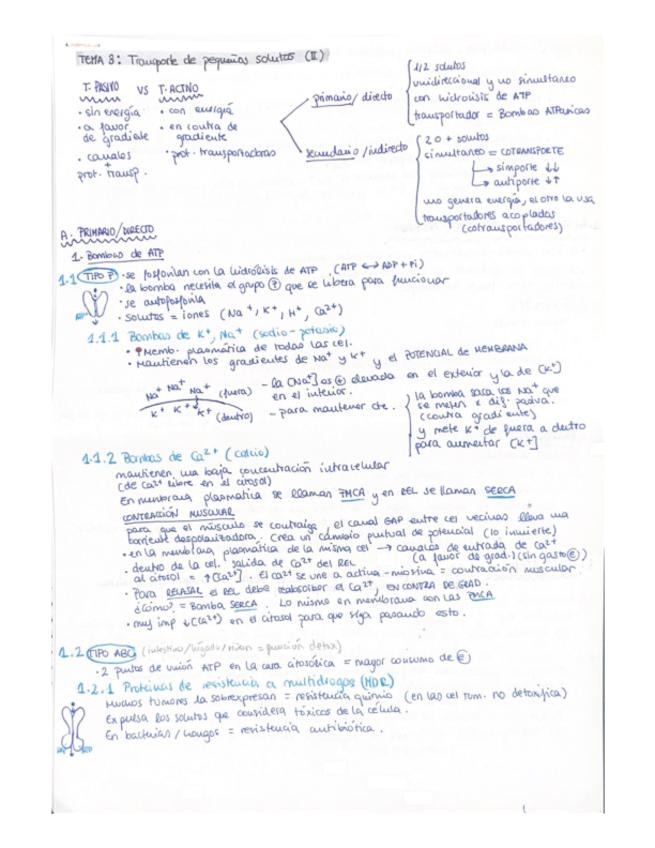 TEMA 3: Transporte de pequeños solutos (II)
T. PASIVO VS T. ACTIVO
· sin energía
· a favor de gradiente
· canales + prot. transp.
· con energía
· en contra de gradiente
· prot. transportadoras
primario / directo
1/2 solutos
unidireccional y no simultaneo
con hidrolisis de ATP
transportador = Bombas ATPasicas
secundario / indirecto
2 o + solutos
simultaneo = COTRANSPORTE
→ simporte ↓↓
→ antiporte ↓↑
uno genera energía, el otro la usa
transportadores acoplados
(cotransportadores)
A. PRIMARIO/DIRECTO
1. Bombas de ATP
1.1 TIPO P · se fosforilan con la hidrólisis de ATP. (ATP ↔ ADP + Pi)
· la bomba necesita el grupo P que se libera para funcionar
· se autofosforila
· solutos = iones (Na⁺, K⁺, H⁺, Ca²⁺)
1.1.1 Bombas de K⁺, Na⁺ (sodio-potasio)
· Memb. plasmática de todas las cel.
· Mantienen los gradientes de Na⁺ y K⁺ y el POTENCIAL de MEMBRANA
Na⁺ Na⁺ Na⁺ (fuera)
K⁺ K⁺ K⁺ (dentro)
- la [Na⁺] es + elevada en el exterior y la de [K⁺]
en el interior.
- para mantener cte.
la bomba saca los Na⁺ que
se meten x dif. pasiva.
(contra gradiente)
y mete K⁺ de fuera a dentro
para aumentar [K⁺]
1.1.2 Bombas de Ca²⁺ (calcio)
mantienen una baja concentración intracelular
(de Ca²⁺ libre en el citosol)
En membrana plasmática se llaman PMCA y en REL se llaman SERCA
CONTRACCIÓN MUSCULAR
para que el músculo se contraiga, el canal GAP entre cel vecinas lleva una
corriente despolarizadora. Crea un cambio puntual de potencial (lo invierte)
· en la membrana plasmática de la misma cel → canales de entrada de Ca²⁺
(a favor de grad.) (sin gasto E)
· dentro de la cel. salida de Ca²⁺ del REL
al citosol = ↑[Ca²⁺]. El Ca²⁺ se une a activa-miosina = contracción muscular.
· Para RELAJAR el REL debe reabsorber el Ca²⁺, EN CONTRA DE GRAD.
¿Cómo? = Bomba SERCA. Lo mismo en membrana con las PMCA
· muy imp ↓[Ca²⁺] en el citosol para que siga pasando esto.
1.2 TIPO ABC (intestino/hígado/riñon = función detox)
· 2 puntos de unión ATP en la cara citosólica = mayor consumo de E
1.2.1 Proteínas de resistencia a multidrogas (MDR)
Muchos tumores la sobrexpresan = resistencia quimio (en las cel tum. no detoxifica)
Expulsa los solutos que considera tóxicos de la célula.
En bacterias/hongos = resistencia antibiótica.